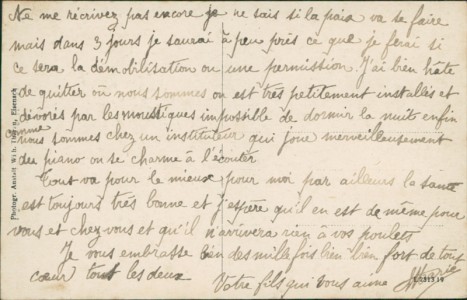 Ne me récrivez pas encore je ne sais si la paix va se faire
mais dans 3 jours je saurai à peu près ce que je ferai si
ce sera la démobilisation ou une permission. J'ai bien hâte
de quitter où nous sommes on est très petitement installés et
dévorés par les moustiques impossible de dormir la nuit enfin
comme nous sommes chez un instituteur qui joue merveilleusement
du piano on se charme à l'écouter
Tout va pour le mieux pour moi par ailleurs la santé
est toujours très bonne et j'espère qu'il en est de même pour
vous et chez vous et qu'il n'arrivera rien à vos poulets
Je vous embrasse bien des mille fois bien bien fort de tout
cœur tous les deux Votre fils qui vous aime
Photogr. Anstalt